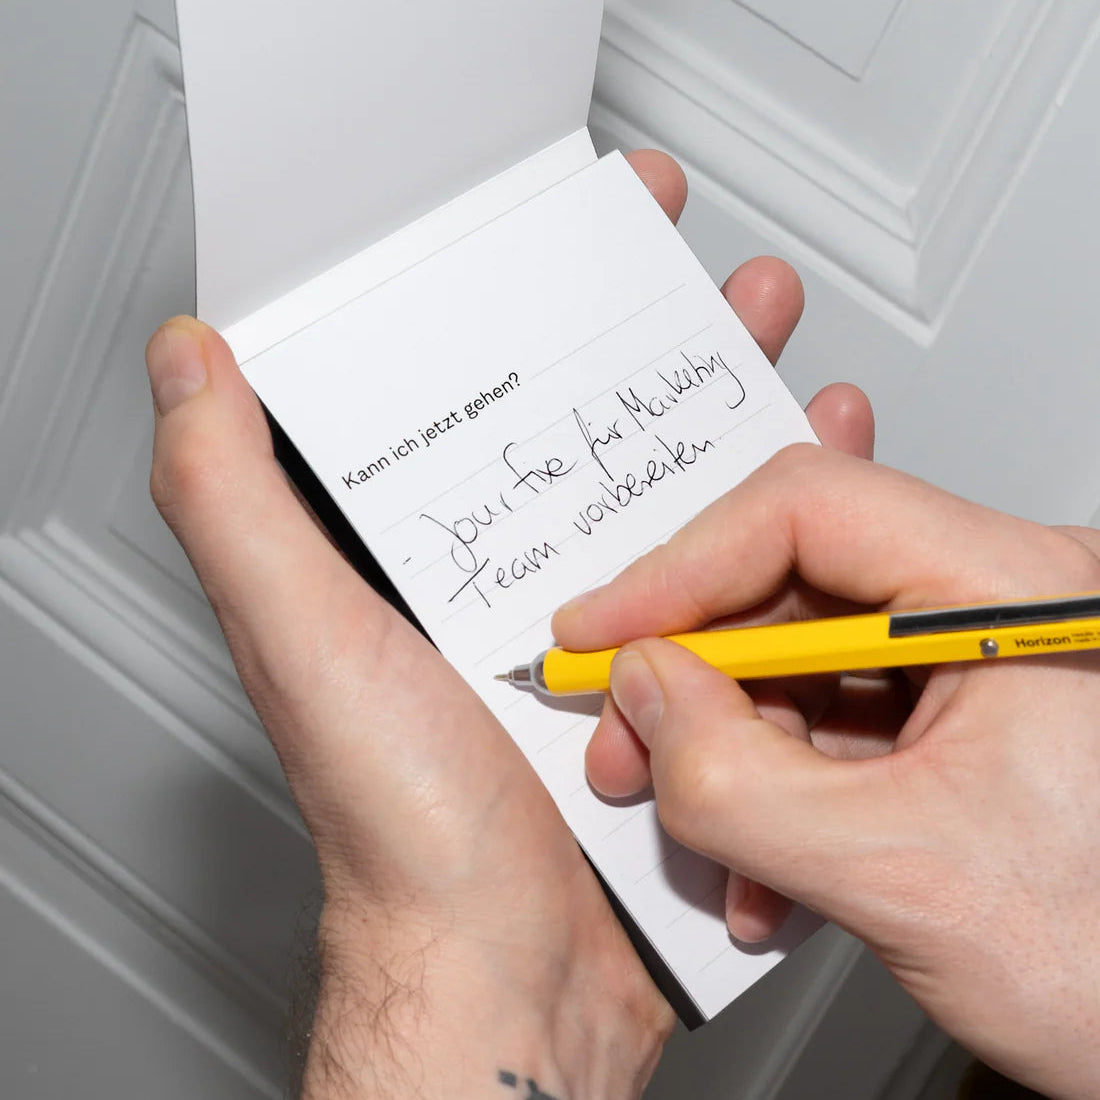 Kann ich jetzt gehen?
- Jour fixe für Marketing
Team vorbereiten.
Horizon